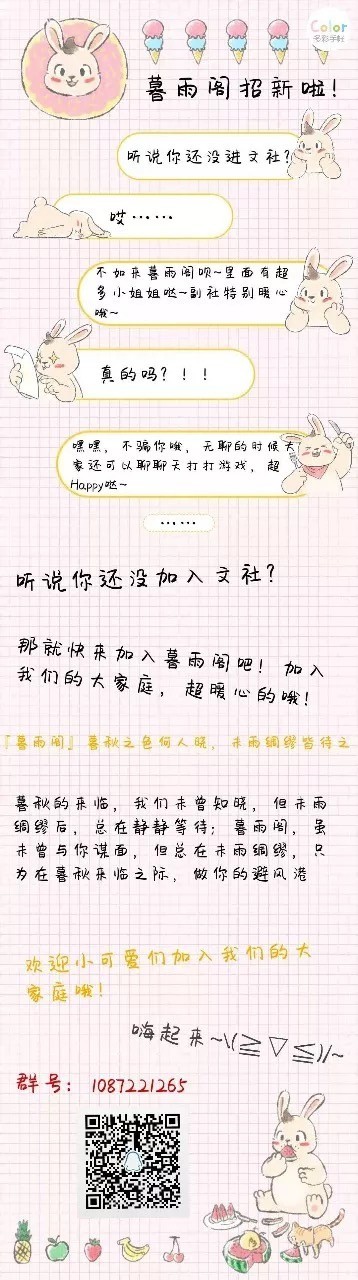 Color
多彩手帐
暮雨阁招新啦！
听说你还没进文社？
哎……
不如来暮雨阁呗~里面有超
多小姐姐哒~副社特别暖心
哦~
真的吗？！！
嘿嘿，不骗你哦，无聊的时候大
家还可以聊聊天打打游戏，超
Happy哒~
……
听说你还没加入文社？
那就快来加入暮雨阁吧！加入
我们的大家庭，超暖心的哦！
『暮雨阁』暮秋之色何人晓，未雨绸缪皆待之
暮秋的来临，我们未曾知晓，但未雨
绸缪后，总在静静等待；暮雨阁，虽
未曾与你谋面，但总在未雨绸缪，只
为在暮秋来临之际，做你的避风港
欢迎小可爱们加入我们的大
家庭哦！
嗨起来~\(≧▽≦)/~
群号：1087221265